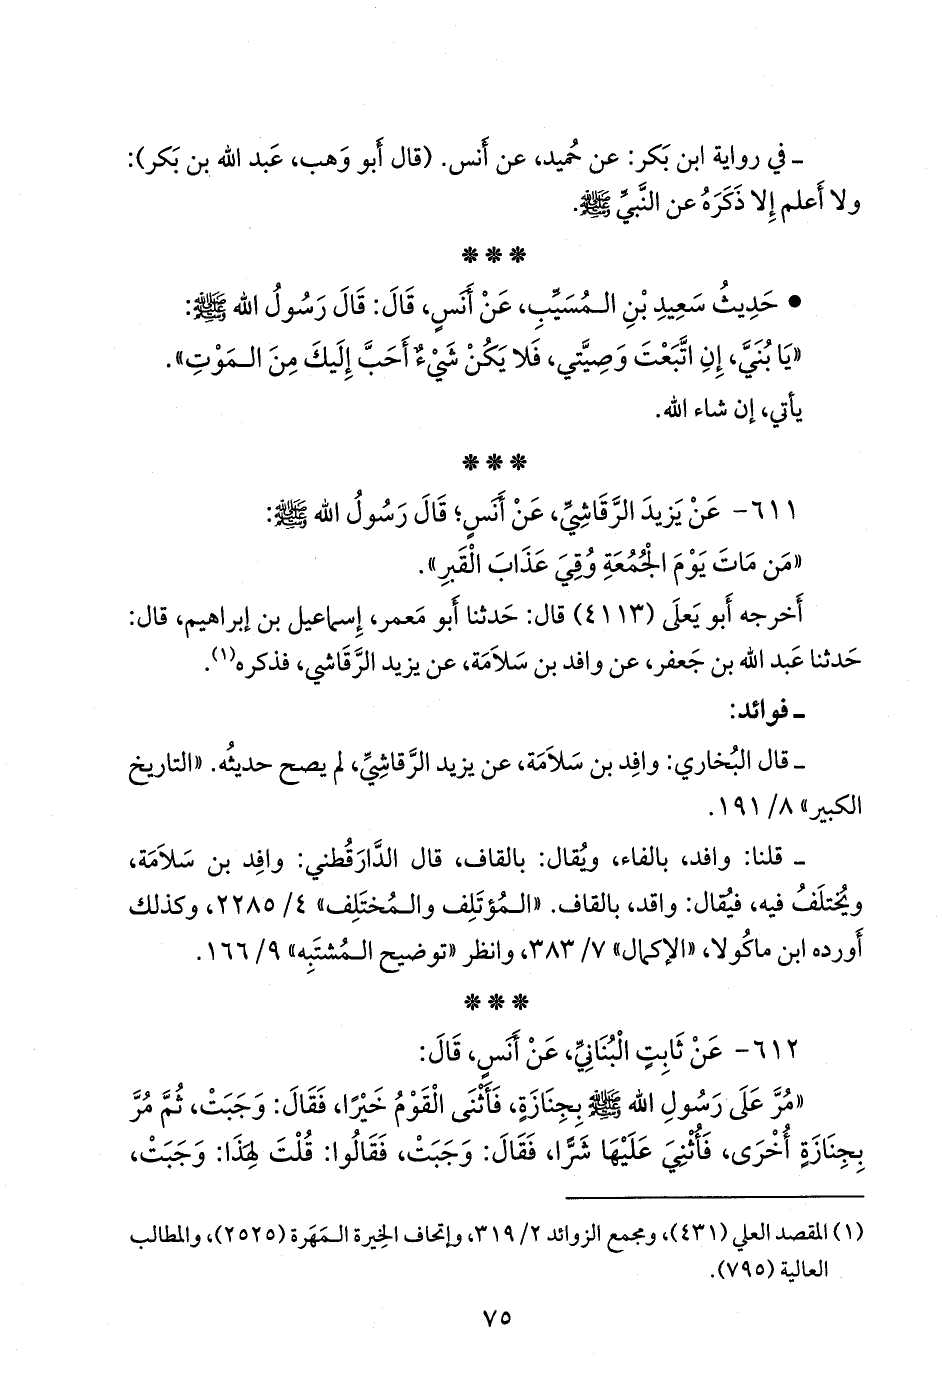 ـ في رواية ابن بَكر: عن حُميد، عن أَنس. (قال أَبو وَهب، عَبد الله بن بَكر):
ولا أَعلم إِلا ذَكَرَهُ عن النَّبيِّ ﷺ.
* * *
• حَدِيثُ سَعِيدِ بْنِ الـمُسَيِّبِ، عَنْ أَنَسٍ، قَالَ: قَالَ رَسُولُ الله ﷺ:
«يَا بُنَيَّ، إِنِ اتَّبَعْتَ وَصِيَّتي، فَلا يَكُنْ شَيْءٌ أَحَبَّ إِلَيكَ مِنَ الـمَوْتِ».
يأتي، إن شاء الله.
* * *
٦١١- عَنْ يَزِيدَ الرَّقَاشِيِّ، عَنْ أَنَسٍ؛ قَالَ رَسُولُ الله ﷺ:
«مَن مَاتَ يَوْمَ الْجُمُعَةِ وُقِيَ عَذَابَ الْقَبرِ».
أَخرجه أَبو يَعلَى (٤١١٣) قال: حَدثنا أَبو مَعمر، إِسماعيل بن إبراهيم، قال:
حَدثنا عَبد الله بن جَعفر، عن وافد بن سَلاَمَة، عن يزيد الرَّقَاشي، فذكره(١).
ـ فوائد:
ـ قال البُخاري: وافِد بن سَلاَمَة، عن يزيد الرَّقاشِيِّ، لم يصح حديثُه. «التاريخ
الكبير» ٨/ ١٩١.
ـ قلنا: وافد، بالفاء، ويُقال: بالقاف، قال الدَّارَقُطني: وافِد بن سَلاَمَة،
ويُختلَفُ فيه، فيُقال: واقد، بالقاف. «الـمُؤتَلِف والـمُختَلِف» ٤/ ٢٢٨٥، وكذلك
أَورده ابن ماكُولا، «الإكمال» ٧/ ٣٨٣، وانظر «توضيح الـمُشتَبِه» ٩/ ١٦٦.
* * *
٦١٢- عَنْ ثَابِتٍ الْبُنَانِيِّ، عَنْ أَنَسٍ، قَالَ:
«مُرَّ عَلَى رَسُولِ الله ﷺ بِجِنَازَةٍ، فَأَثْنَى الْقَوْمُ خَيْرًا، فَقَالَ: وَجَبَتْ، ثُمَّ مُرَّ
بِجِنَازَةٍ أُخْرَى، فَأُثْنِيَ عَلَيْهَا شَرًّا، فَقَالَ: وَجَبَتْ، فَقَالُوا: قُلْتَ لِهَذَا: وَجَبَتْ،
(١) المقصد العلي (٤٣١)، ومجمع الزوائد ٢/ ٣١٩، وإتحاف الخيرة الـمَهَرة (٢٥٢٥)، والمطالب
العالية (٧٩٥).
٧٥